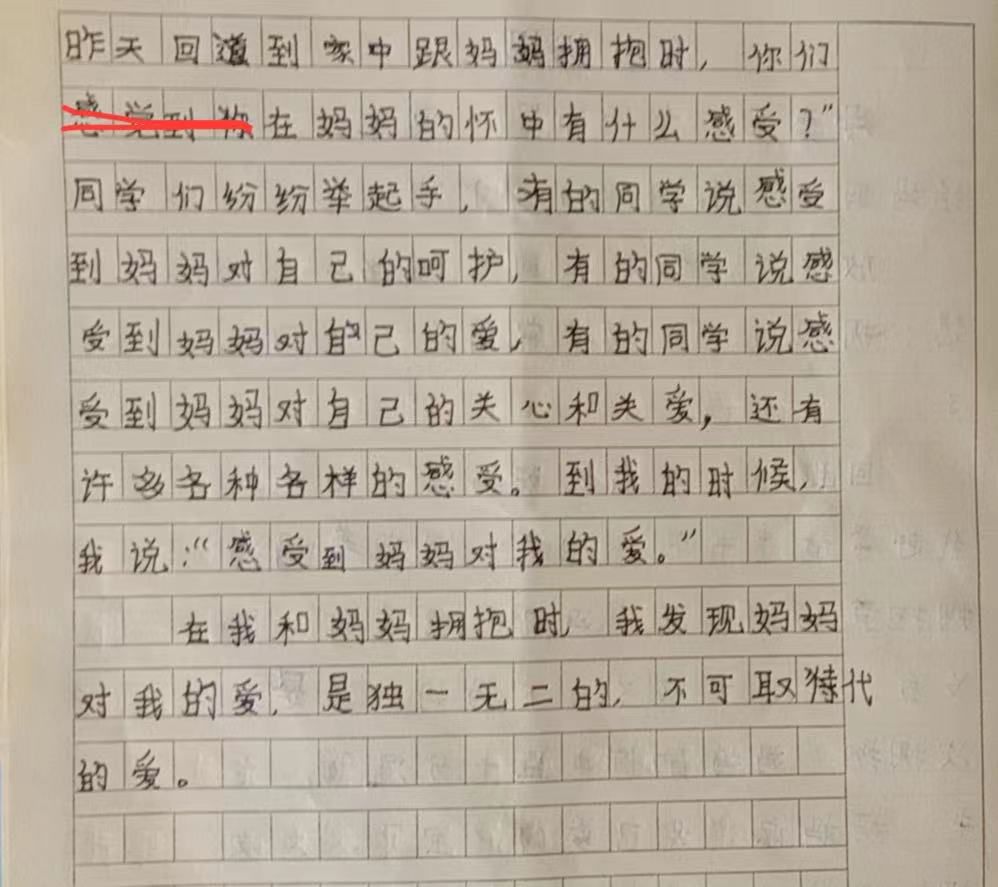 昨天回道到家中跟妈妈拥抱时，你们
感觉到你在妈妈的怀中有什么感受？”
同学们纷纷举起手，有的同学说感受
到妈妈对自己的呵护，有的同学说感
受到妈妈对自己的爱，有的同学说感
受到妈妈对自己的关心和关爱，还有
许多各种各样的感受。到我的时候，
我说：“感受到妈妈对我的爱。”
在我和妈妈拥抱时，我发现妈妈
对我的爱，是独一无二的，不可取特代
的爱。